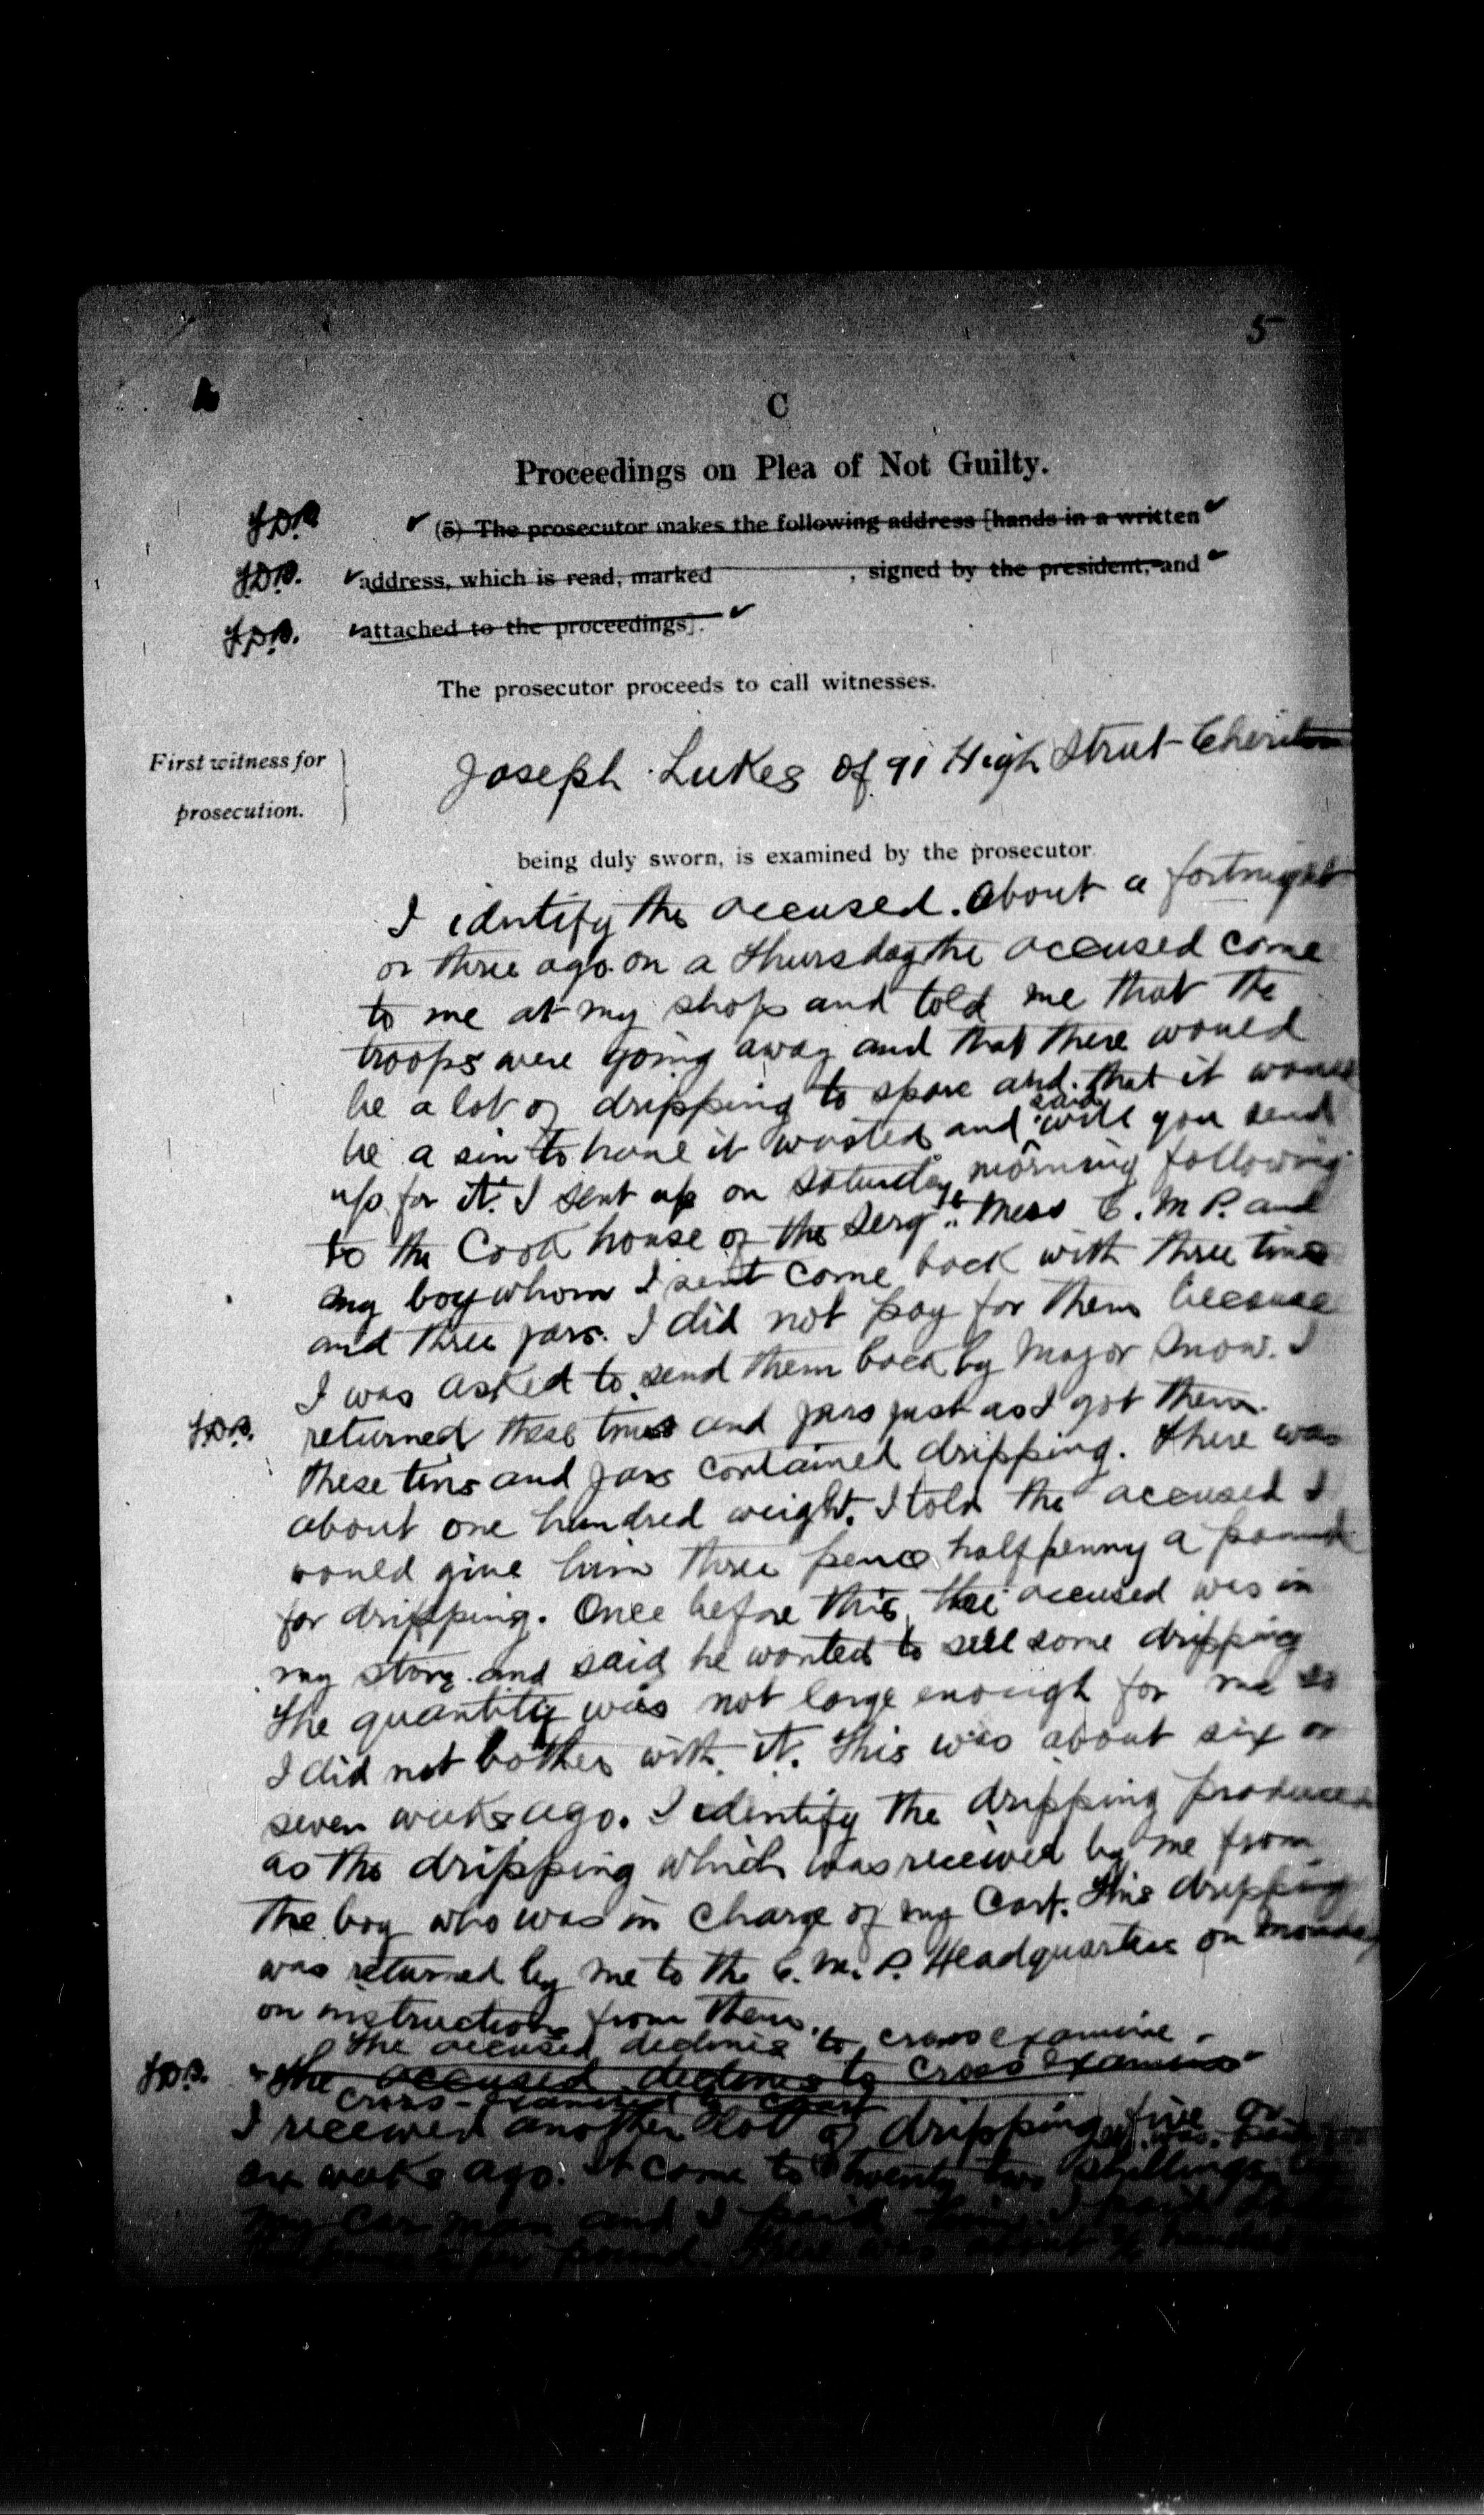 5
C
Proceedings on Plea of Not Guilty.
(5) The prosecutor makes the following address [hands in a written
address, which is read, marked , signed by the president, and
attached to the proceedings].
The prosecutor proceeds to call witnesses.
First witness for
prosecution.
Joseph Lukes of 91 High Street Cheriton
being duly sworn, is examined by the prosecutor
I identify the accused. About a fortnight
or three ago on a Thursday the accused come
to me at my shop and told me that the
troops were going away and that there would
be a lot of dripping to spare and that it would
be a sin to have it wasted and said "will you send
up for it". I sent up on Saturday morning following
to the Cook house of the Sergts Mess C.M.P. and
my boy whom I sent come back with three tins
and three jars. I did not pay for them because
I was asked to send them back by Major Snow. I
returned these tins and jars just as I got them.
These tins and jars contained dripping. There was
about one hundred weight. I told the accused I
would give him three pence halfpenny a pound
for dripping. Once before this the accused was in
my store and said he wanted to sell some dripping
The quantity was not large enough for me so
I did not bother with it. This was about six or
seven weeks ago. I identify the dripping produced
as the dripping which was received by me from
the boy who was in charge of my Cart. This dripping
was returned by me to the C.M.P. Headquarters on Monday
on instructions from them.
The accused declines to cross examine.
The accused declines to cross examine
Cross-examined by Court
I received another lot of dripping five or
six weeks ago. It come to twenty two shillings
my car man and I paid him. I paid
per pound. There was about